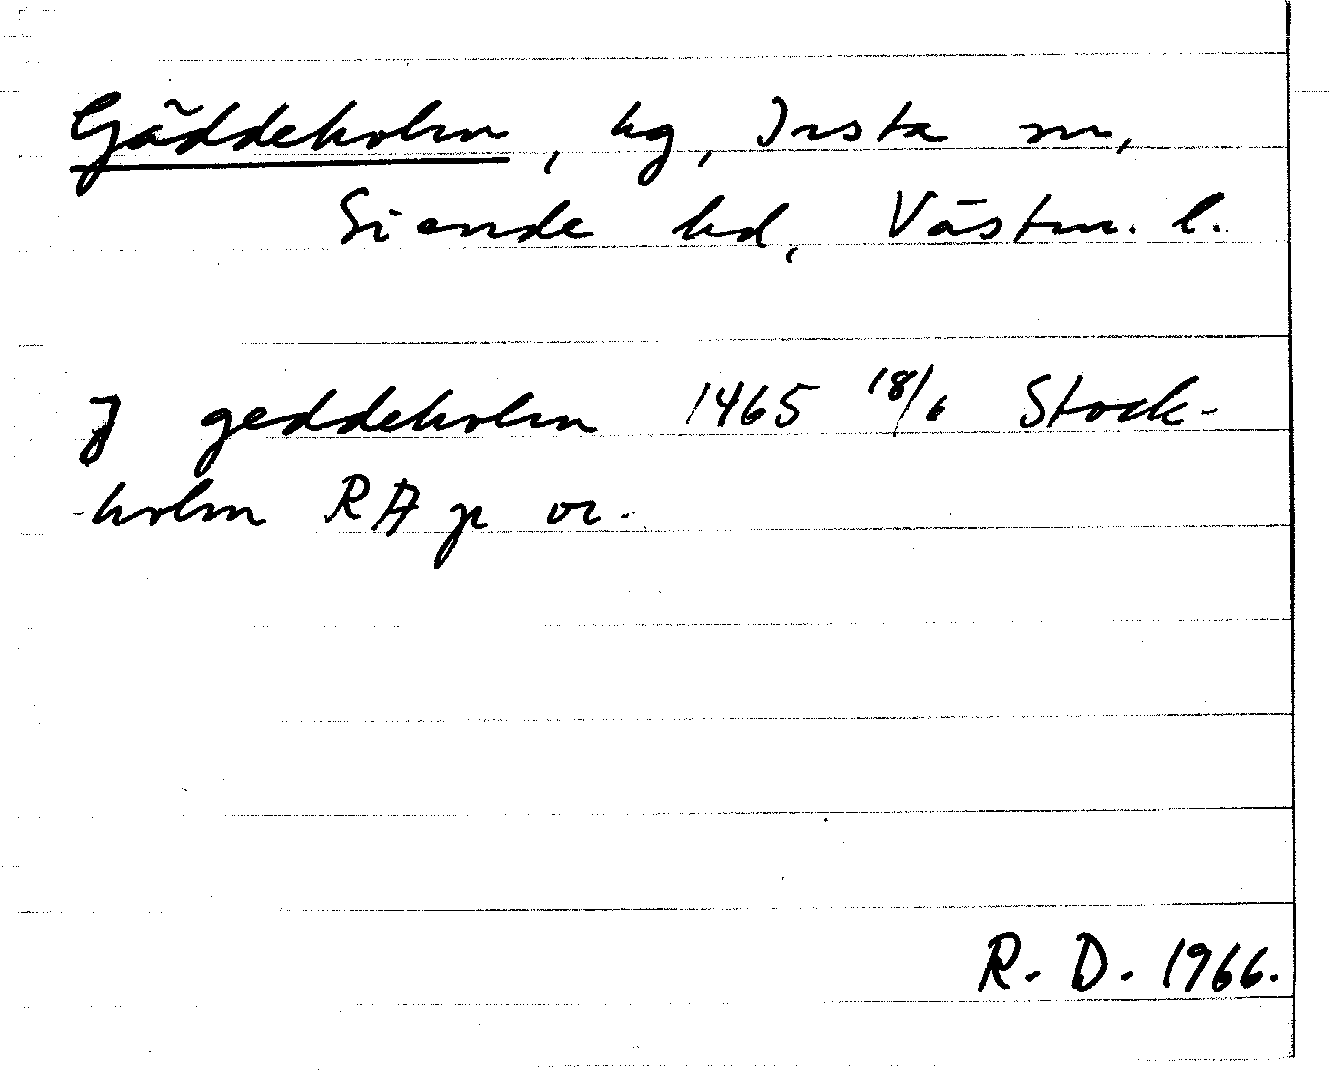 Gäddeholm, hg, Irsta sn,
Siende hd, Västm. l.
J geddeholm 1465 18/6 Stock-
-holm RA p or.
R. D. 1966.